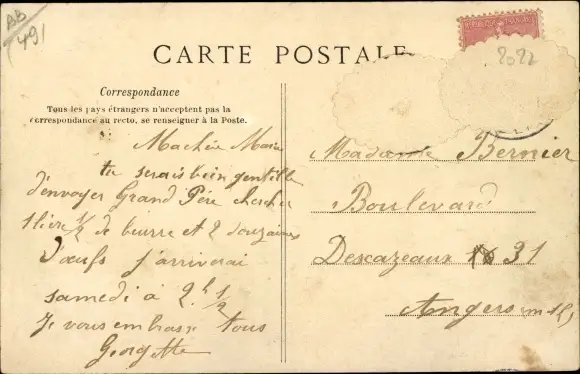 BB
491
CARTE POSTALE
2022
Correspondance
Tous les pays étrangers n'acceptent pas la
correspondance au recto, se renseigner à la Poste.
Ma chère Marie
tu serais bien gentille
d'envoyer Grand Père chercher
1 livre ½ de beurre et 2 douzaines
d'œufs j'arriverai
samedi à 2h ½
Je vous embrasse tous
Georgette
Madame Bernier
Boulevard
Descazeaux 31
Angers